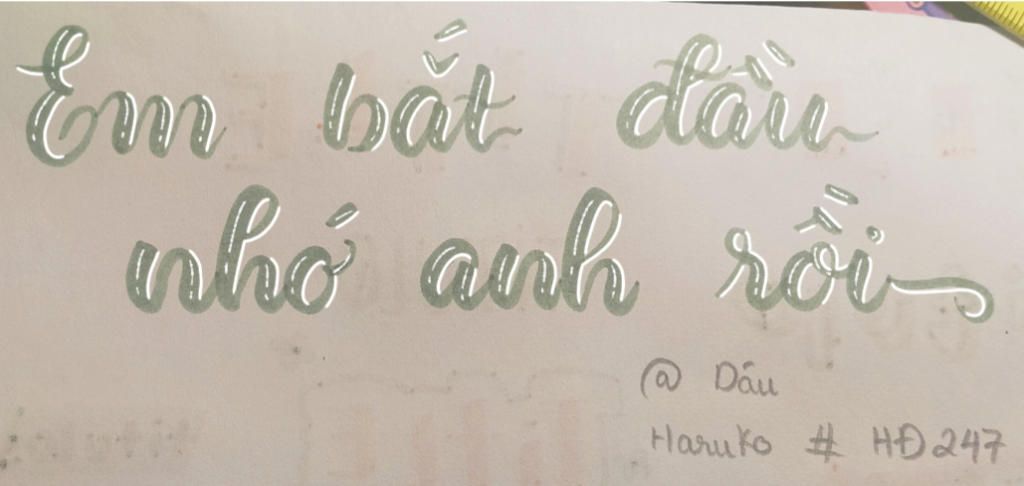 Em bắt đầu
nhớ anh rồi
@ Dâu
Haruko # HĐ247